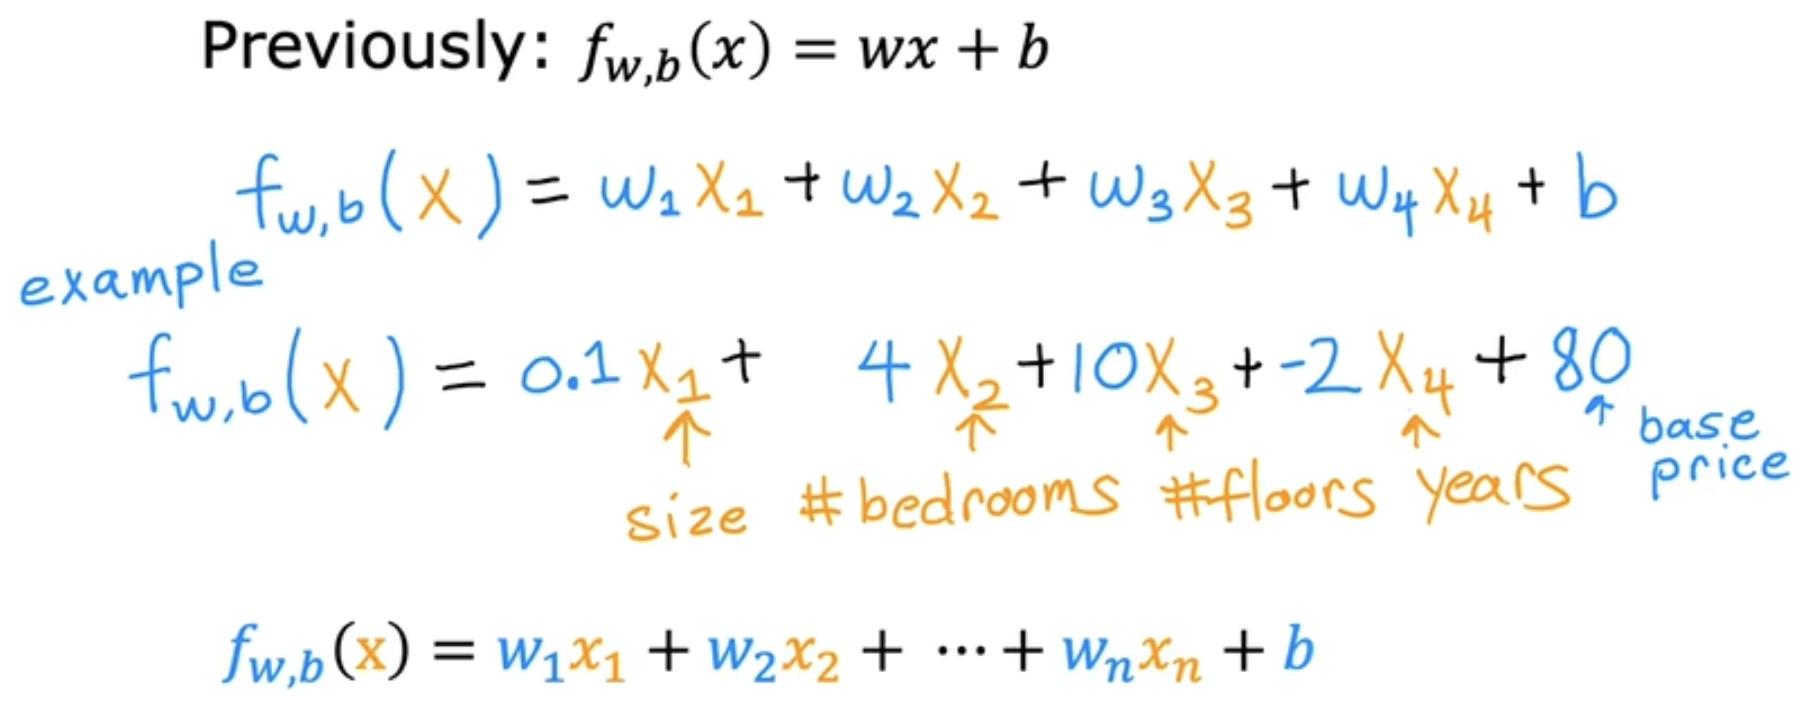 Previously: f_{w,b}(x) = wx + b
f_{w,b}(x) = w₁x₁ + w₂x₂ + w₃x₃ + w₄x₄ + b
example
f_{w,b}(x) = 0.1x₁ + 4x₂ + 10x₃ + -2x₄ + 80
↑ size ↑ #bedrooms ↑ #floors ↑ years ↑ base price
f_{w,b}(x) = w₁x₁ + w₂x₂ + ⋯ + wₙxₙ + b